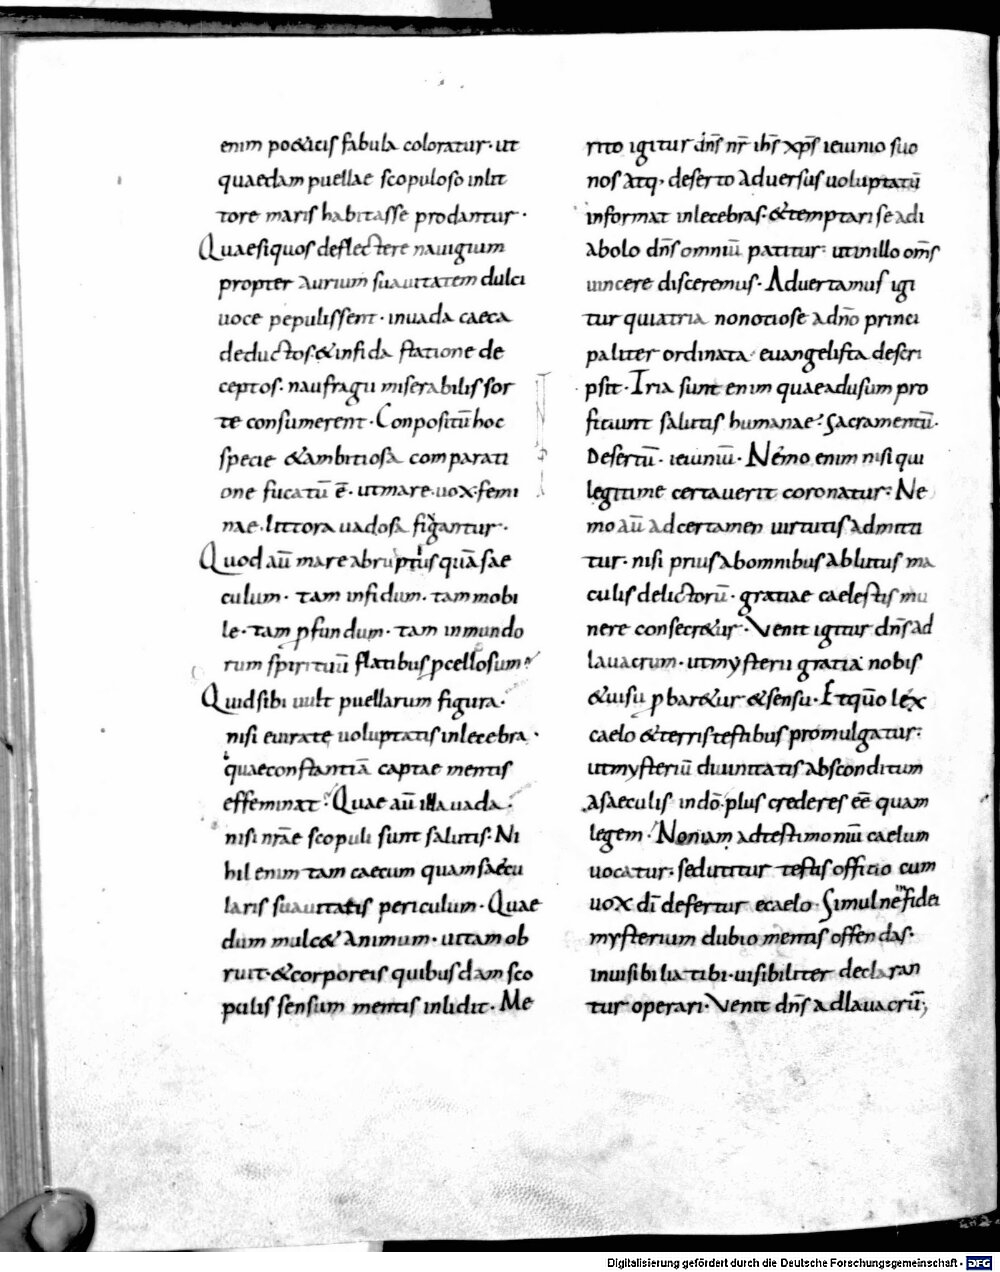 enim po&icis fabula coloratur · ut
quaedam puellae scopuloso inlit
tore maris habitasse prodantur ·
Quaesiquos deflectere nauigium
propter aurium suauitatem dulci
uoce pepulissent · inuada caeca
deductos & infida statione de
ceptos · naufragii miserabilis sor
te consumerent · Conpositū hoc
specie & ambitiosa comparati
one fucatū ē · ut mare · uox · femi
nae · littora uadosa figantur ·
Quod aū mare abruptius quā sae
culum · tam infidum · tam mobi
le · tam ꝓfundum · tam inmundo
rum spirituū flatibus ꝓcellosum ?
Quid sibi uult puellarum figura ·
nisi euiratę uoluptatis inlecebra ·
quae constantiā captae mentis
effeminat ? Quae aū illa uada ·
nisi nr̄ae scopuli sunt salutis · Ni
hil enim tam caecum quam saecu
laris suauitatis periculum · Quae
dum mulc& animum · uitam ob
ruit · & corporeis quibusdam sco
pulis sensum mentis inlidit · Me
rito igitur dn̄s nr̄ ih̄s xp̄s ieiunio suo
nos atq, deserto aduersus uoluptatū
informat inlecebras · & temptari se adi
abolo dn̄s omniū patitur · ut in illo om̄s
uincere disceremus · Aduertamus igi
tur quia tria non otiose a dn̄o princi
paliter ordinata euangelista descri
psit · Tria sunt enim quae ad usum pro
ficiunt salutis humanae · Sacramentū ·
Desertū · ieiuniū · Nemo enim nisi qui
legitime certauerit coronatur · Ne
mo aū ad certamen uirtutis admitti
tur · nisi prius ab omnibus ablutus ma
culis delictorū · gratiae caelestis mu
nere consecr&ur · Venit igitur dn̄s ad
lauacrum · ut mysterii gratia nobis
& uisu ꝓbar&ur & sensu · Et quō lex
caelo & terris testibus promulgatur ·
ut mysteriū diuinitatis absconditum
a saeculis in dō plus crederes eē quam
legem · Non iam ad testimoniū caelum
uocatur · sed utitur testis officio cum
uox dī defertur e caelo · Simul ne fidei
mysterium dubio mentis offendas ·
inuisibilia tibi · uisibiliter declaran
tur operari · Venit dn̄s ad lauacrū ;
Digitalisierung gefördert durch die Deutsche Forschungsgemeinschaft - DFG